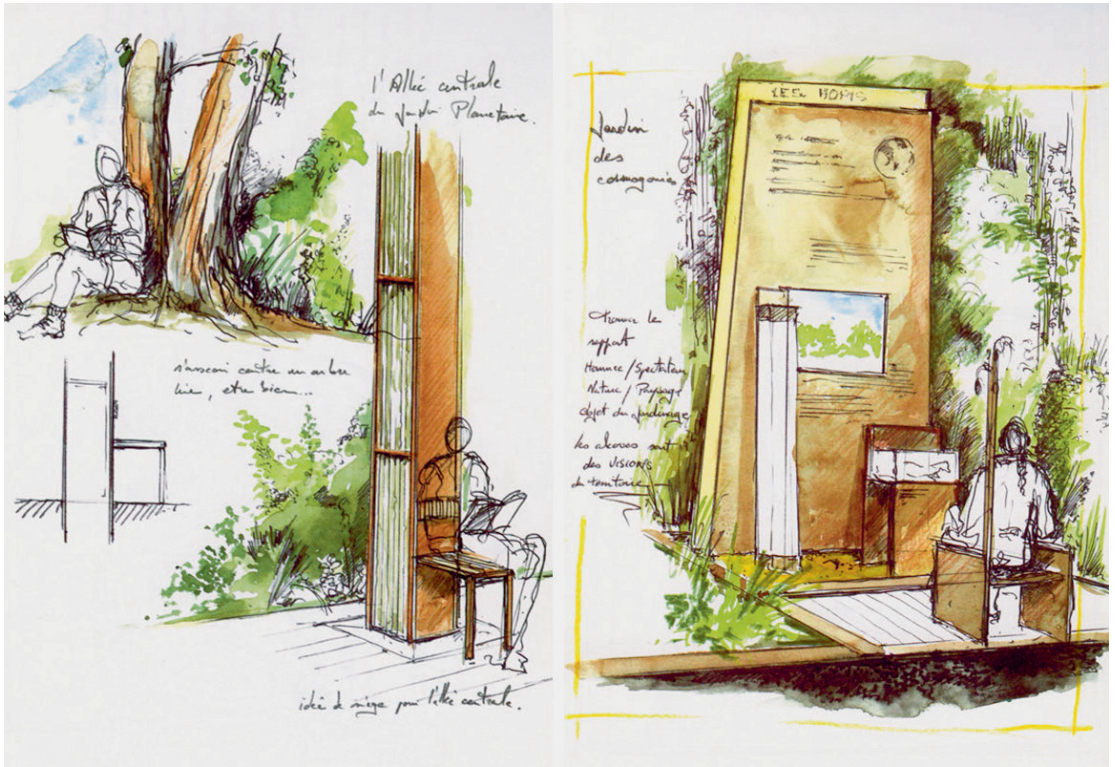 l'Allée centrale
du Jardin Planétaire.
s'asseoir contre un arbre
lire, etre bien...
idée de siège pour l'allée centrale.
Jardin
des
cosmogonies
LES HOPIS
trouver le
rapport
Homme/Spectateur
Nature/Paysage
objet du jardinage
les alcoves sont
des VISIONS
du territoire